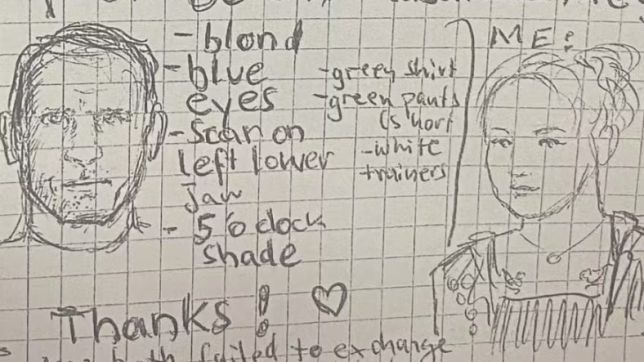 - blond
- blue
eyes
- Scar on
left lower
jaw
- 5 o'clock
shade
- green shirt
- green pants
(short
- white
trainers
ME:
Thanks! ♡
both failed to exchange